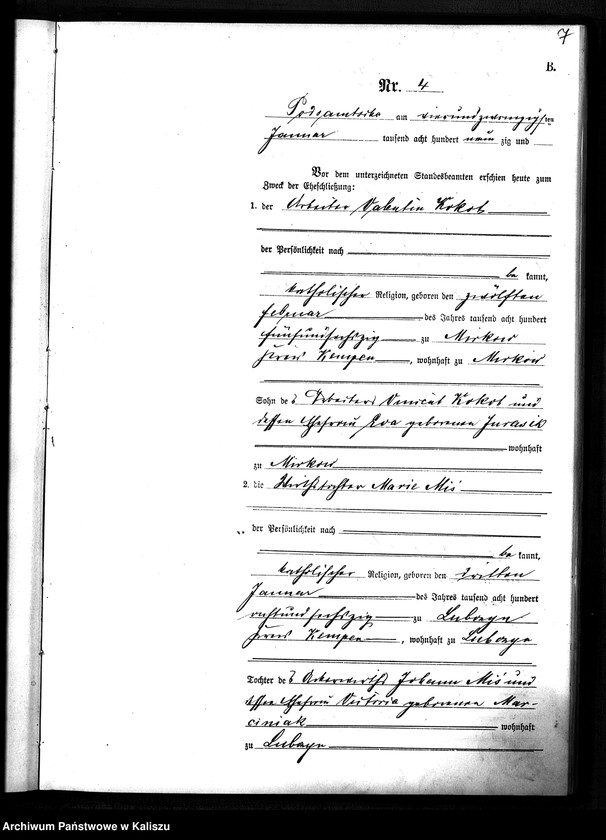 7
B.
Nr. 4
Podzamtsche am vierundzwanzigsten
Januar tausend acht hundert neun zig und
Vor dem unterzeichneten Standesbeamten erschien heute zum
Zweck der Eheschließung:
1. der Arbeiter Valentin Kokot
der Persönlichkeit nach
be kannt,
katholischer Religion, geboren den zwölften
Februar des Jahres tausend acht hundert
fünfundsechszig zu Mirkow
Kreis Kempen, wohnhaft zu Mirkow
Sohn des Arbeiters Vincent Kokot und
dessen Ehefrau Eva geborenen Jurasik
wohnhaft
zu Mirkow
2. die Wirthstochter Marie Miś
der Persönlichkeit nach
be kannt,
katholischer Religion, geboren den dritten
Januar des Jahres tausend acht hundert
achtundsechszig zu Lubczyn
Kreis Kempen, wohnhaft zu Lubczyn
Tochter des Ackerwirths Johann Miś und
dessen Ehefrau Victoria geborenen Mar-
ciniak wohnhaft
zu Lubczyn
Archiwum Państwowe w Kaliszu